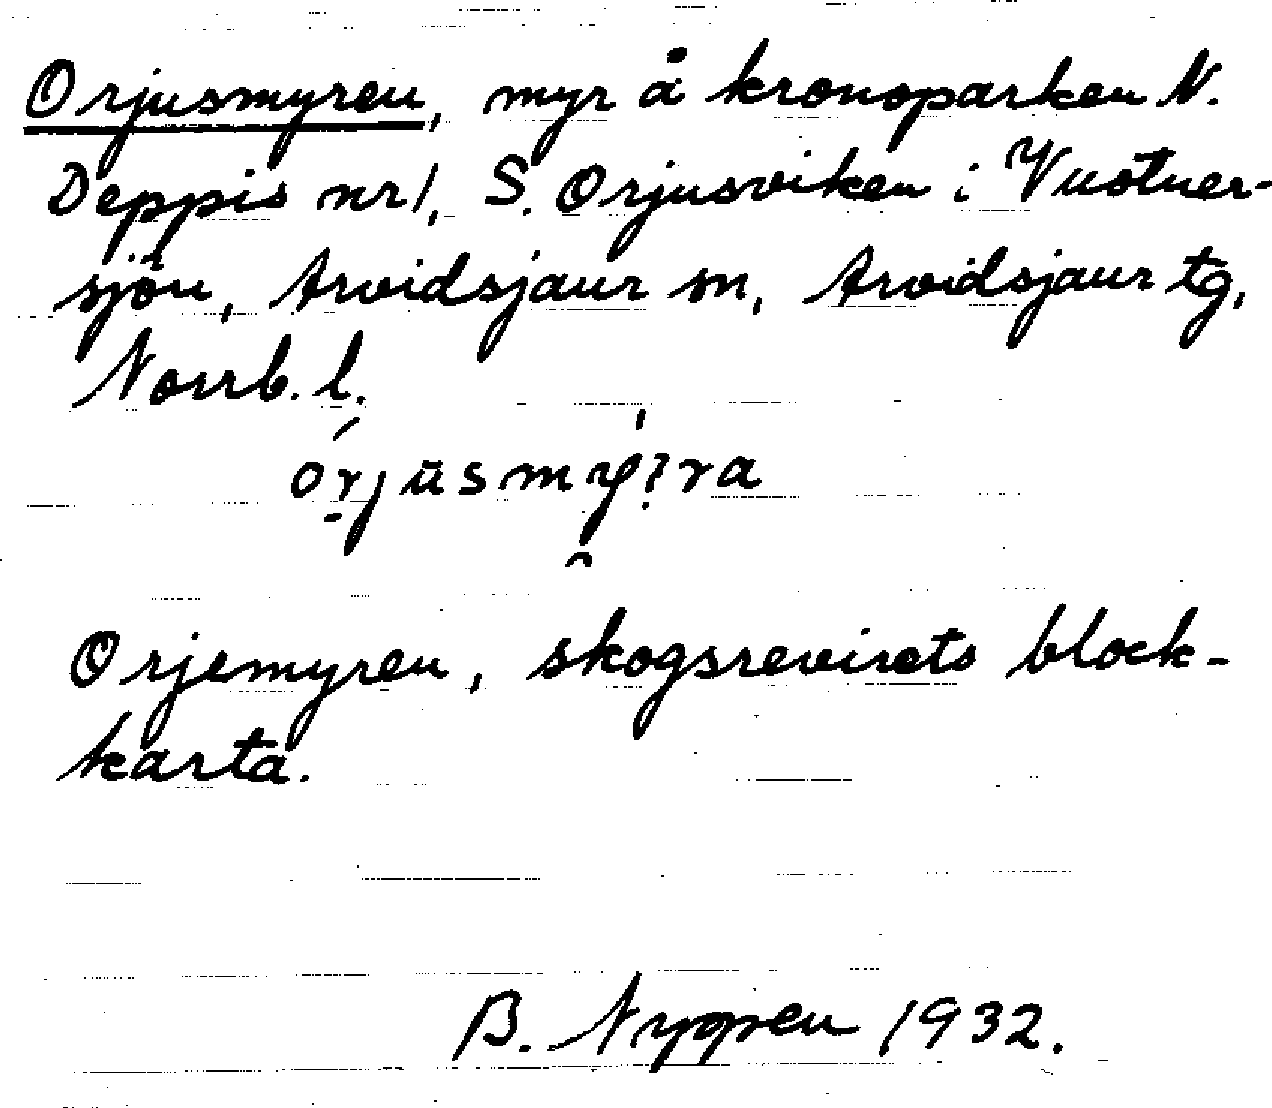 Orjusmyren, myr å kronoparken N.
Deppis nr 1, S. Orjusviken i Vuotner-
sjön, Arvidsjaur sn, Arvidsjaur tg,
Norrb. l.
Orjemyren, skogsrevirets block-
karta.
B. Nygren 1932.